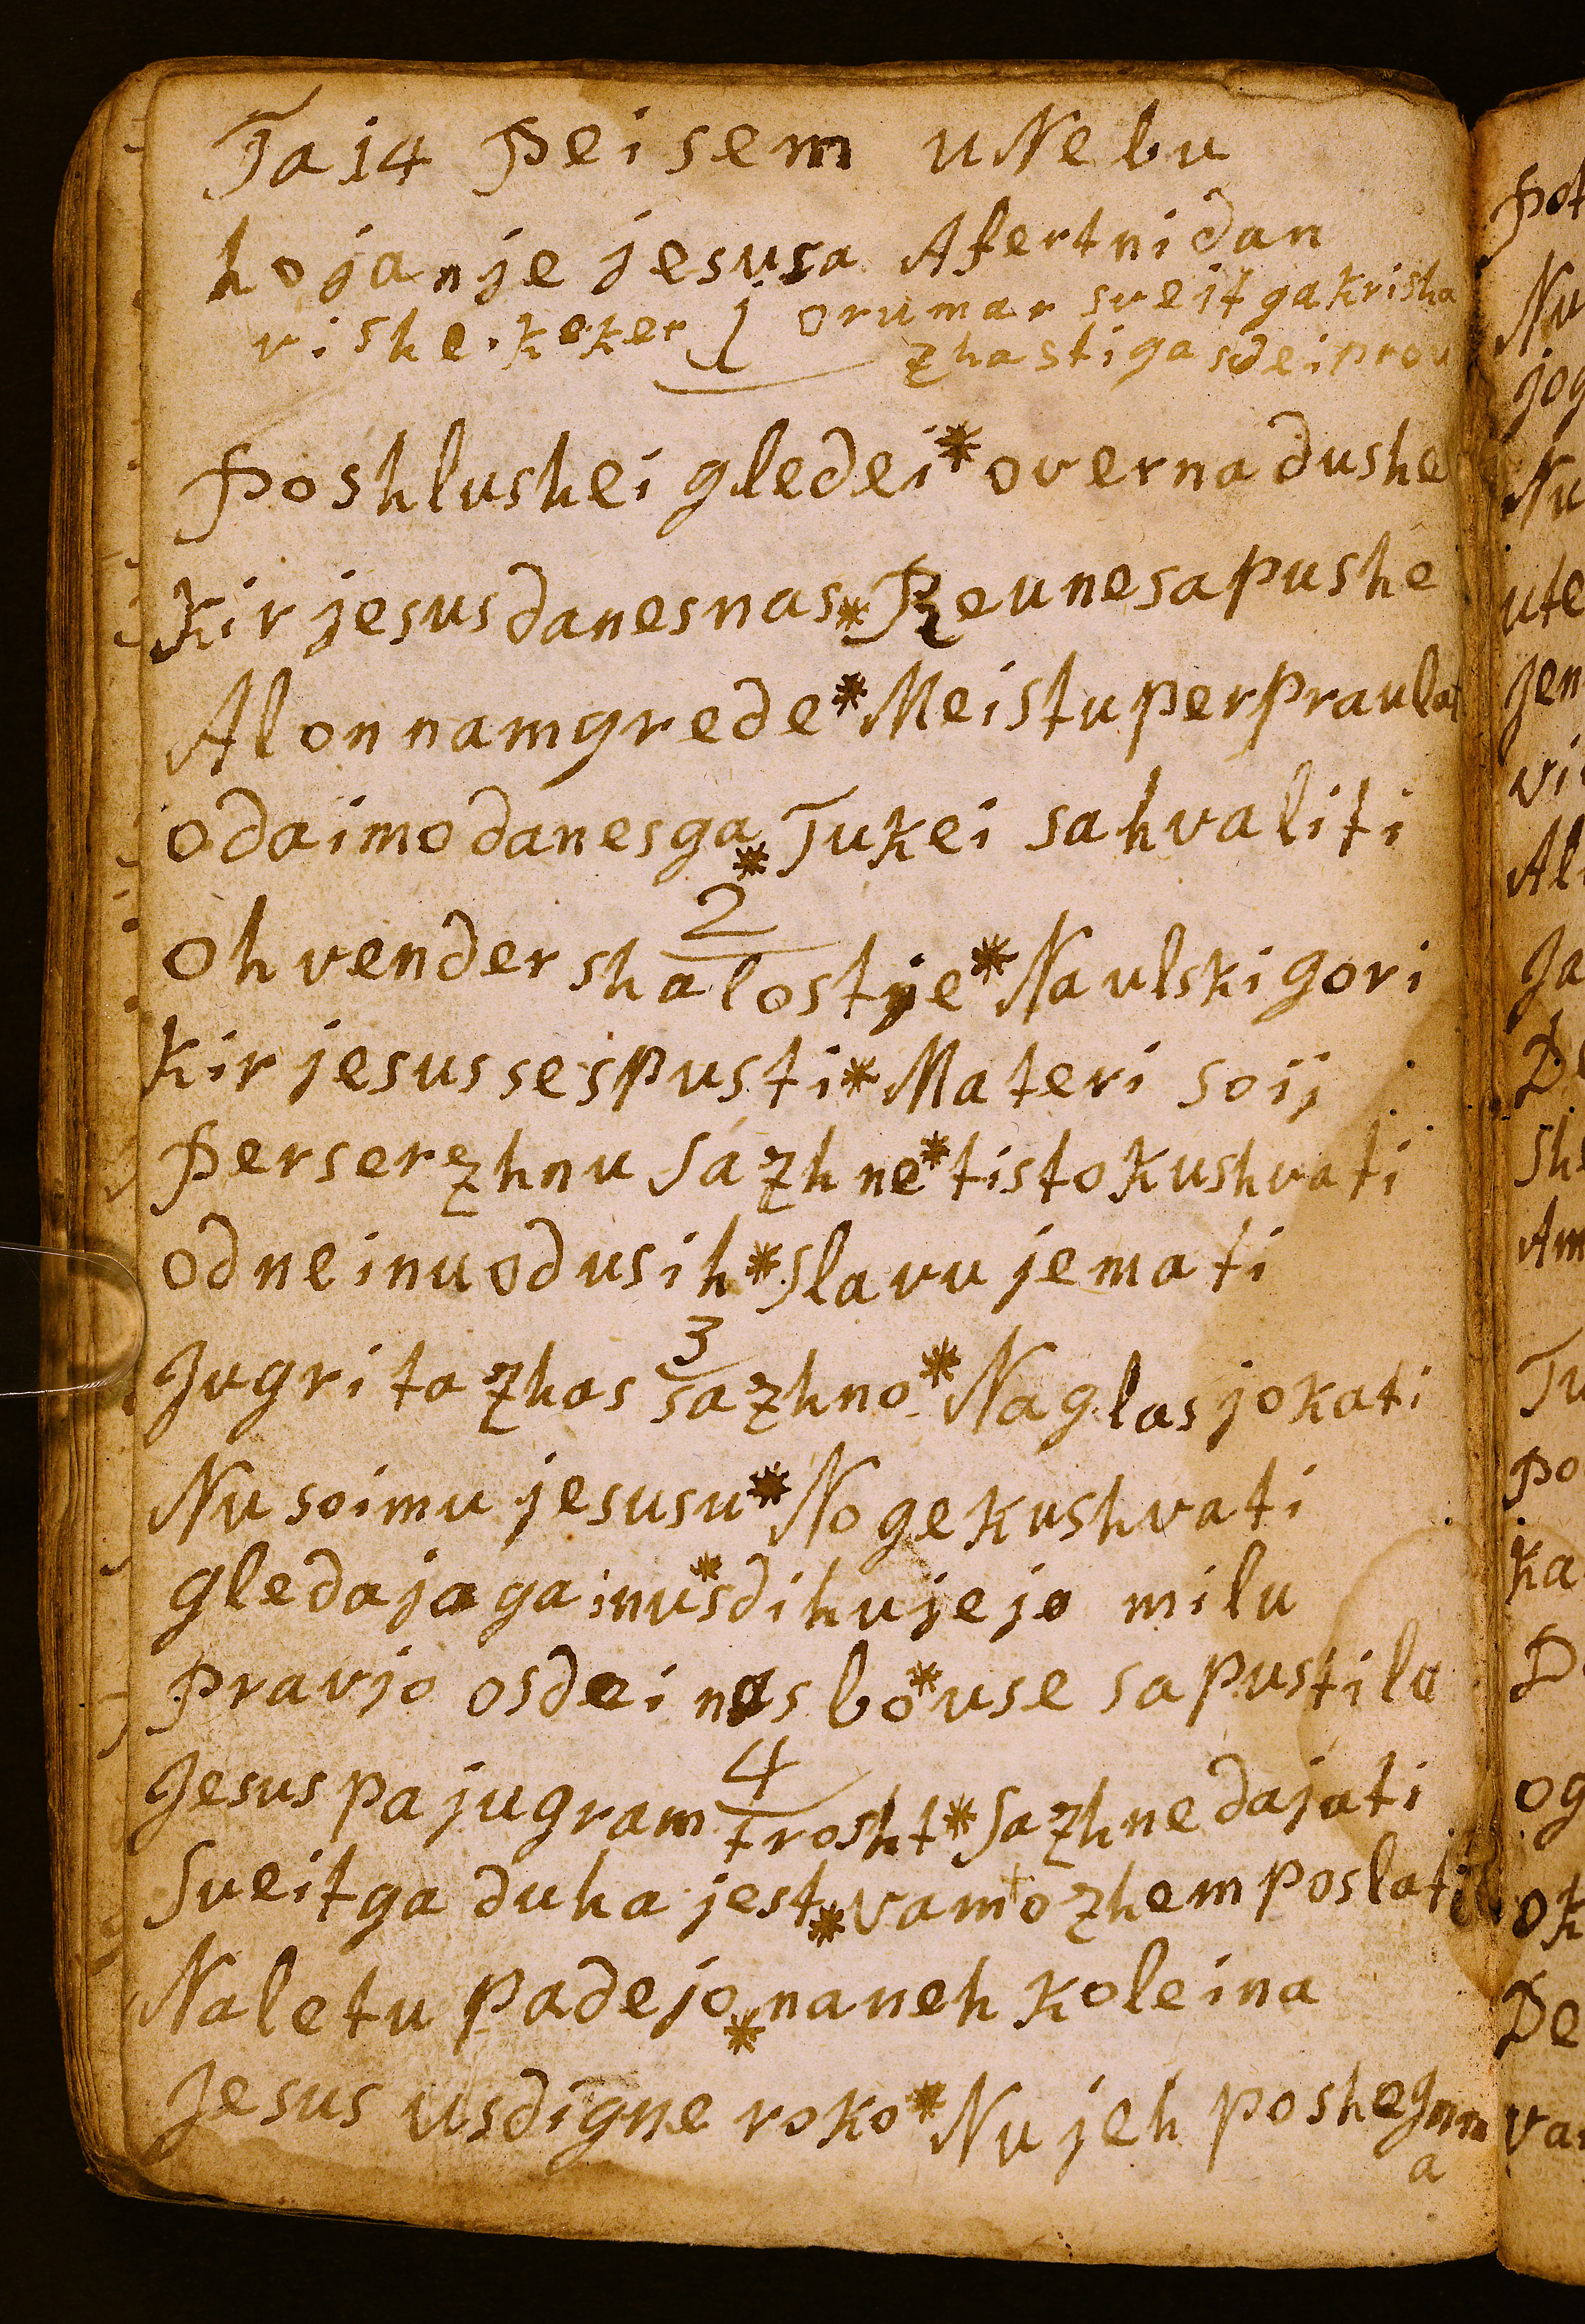 Ta 14 Peisem u Nebu
hojanje jesusa Afertni dan
vishe. keker j orumar sveitga krisha
zhastiga sdei prou
Poshlushei gledei * o verna dushe
Kir jesus danes nas * Reune sapushe
Al on nam grede * Meistu perpraulat
o daimo danes ga * Tukei sahvaliti
2
Oh vender shalostje * Na ulski gori
Kir jesus se spusti * Materi soij
Perserzhnu sazhne * tisto kushvati
od nei nu od usih * slavu jemati
3
Jugri ta zhas sazhno * Na glas jokati
Nu soimu jesusu * Noge kushvati
gledaja ga inu * sdihujejo milu
Pravjo osdei nas bo * use sapustilu
4
Jesus pa jugram trosht * sazhne dajati
Sveitga duha jest * vam ozhem poslati
Na le tu padejo * na neh koleina
Jesus usdigne roko * Nu jeh poshegnm
a